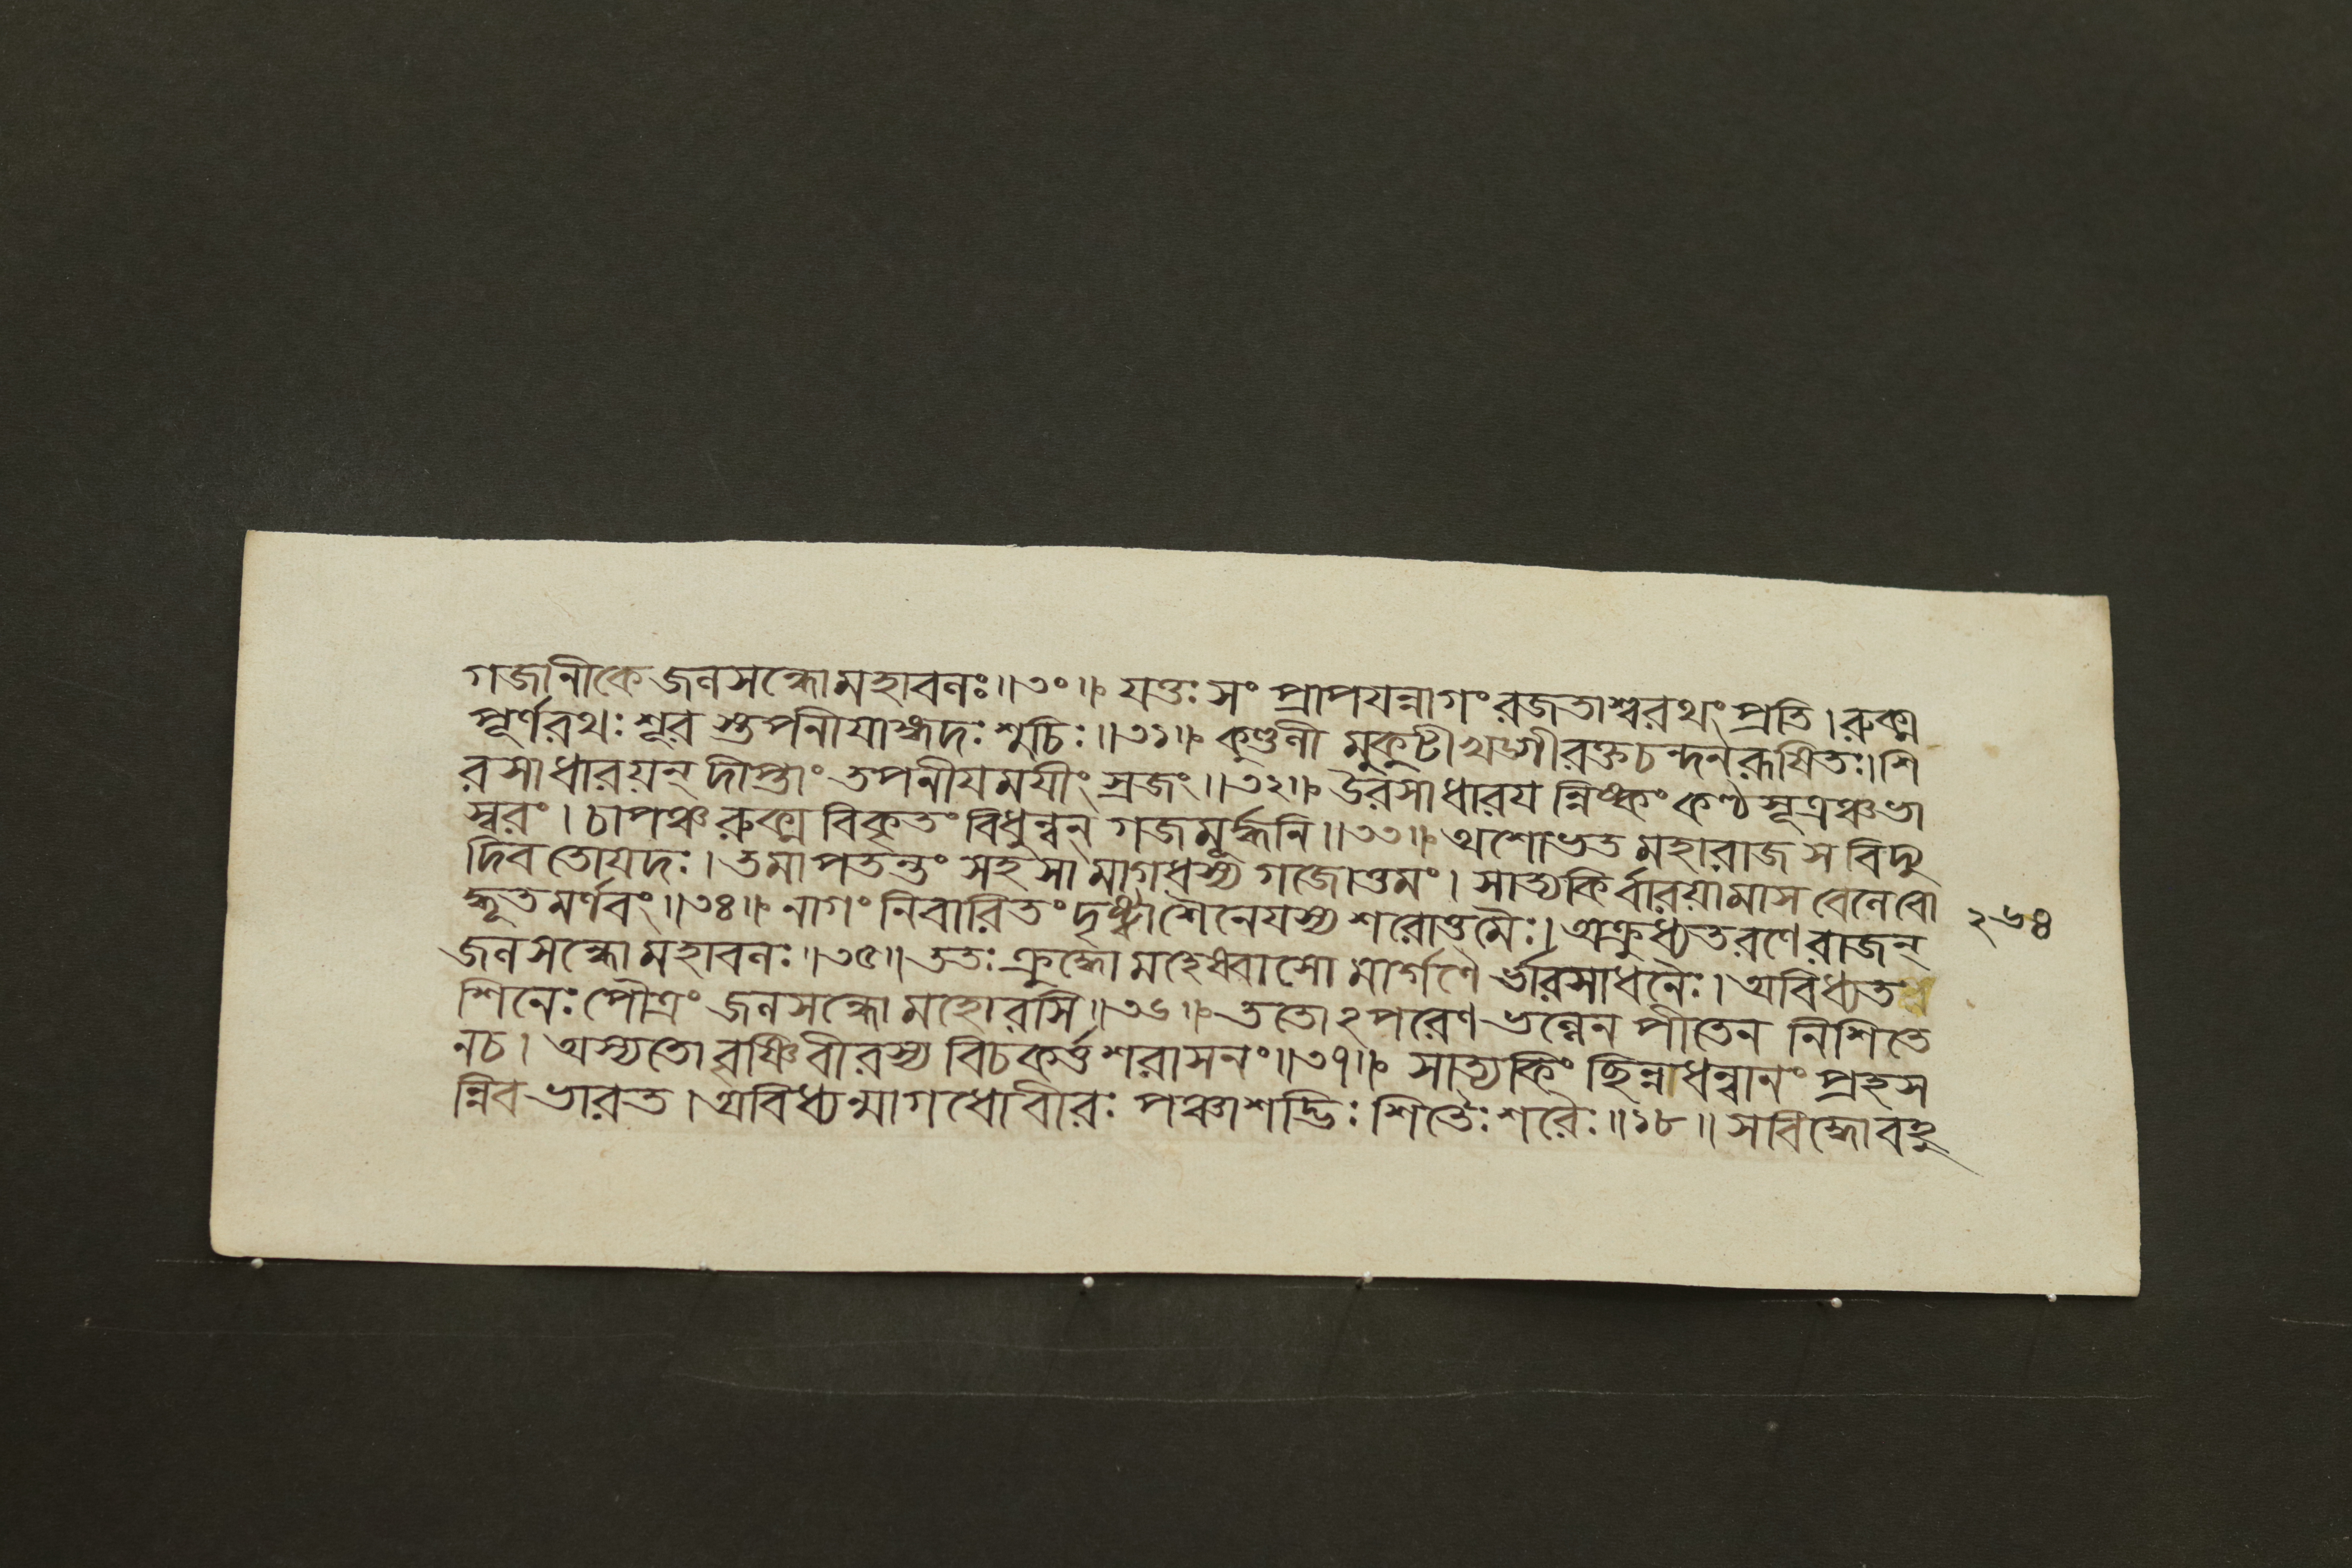 গজানীকে জলসন্ধোমহাবলঃ॥৩০॥ যত্তঃ সং প্রাপযন্নাগং রজতাশ্বরথং প্রতি। রুক্ম
পূর্ণরথঃ শূর স্তপনীযাঙ্গদঃ শুচিঃ॥৩১॥ কুণ্ডলী মুকুটী খড্গী রক্তচন্দনরূষিতঃ। শি
রসাধারয়ন্ দীপ্তাং তপনীযমযীং স্রজং॥৩২॥ উরসাধারয ন্নিষ্কং কণ্ঠসূত্রঞ্চভা
স্বরং। চাপঞ্চ রুক্ম বিকৃতং বিধুন্বন্ গজমূর্দ্ধনি॥৩৩॥ অশোভত মহারাজ সবিদ্যু
দিব তোযদঃ। তমাপতন্তং সহসা মাগধস্য গজোত্তমং। সাত্যকি র্বারয়ামাস বেলেবো
দ্ধূতমর্ণবং॥৩৪॥ নাগং নিবারিতং দৃষ্ট্বা শৈনেযস্য শরোত্তমৈঃ। অক্রুধ্যতরণে রাজন্
২৬৪
জলসন্ধো মহাবলঃ॥৩৫॥ ততঃ ক্রুদ্ধো মহেষ্বাসো মার্গণৈ র্ভারসাধনৈঃ। অবিধ্যত
শিনেঃ পৌত্রং জলসন্ধো মহোরসি॥৩৬॥ ততোঽপরেণ ভল্লেন পীতেন নিশিতে
নচ। অস্যতো বৃষ্ণিবীরস্য বিচকর্ত্ত শরাসনং॥৩৭॥ সাত্যকিং ছিন্নধন্বানং প্রহস
ন্নিব ভারত। অবিধ্যন্মাগধোবীরঃ পঞ্চাশদ্ভিঃ শিতৈঃ শরৈঃ॥১৮॥ সবিদ্ধোবহু